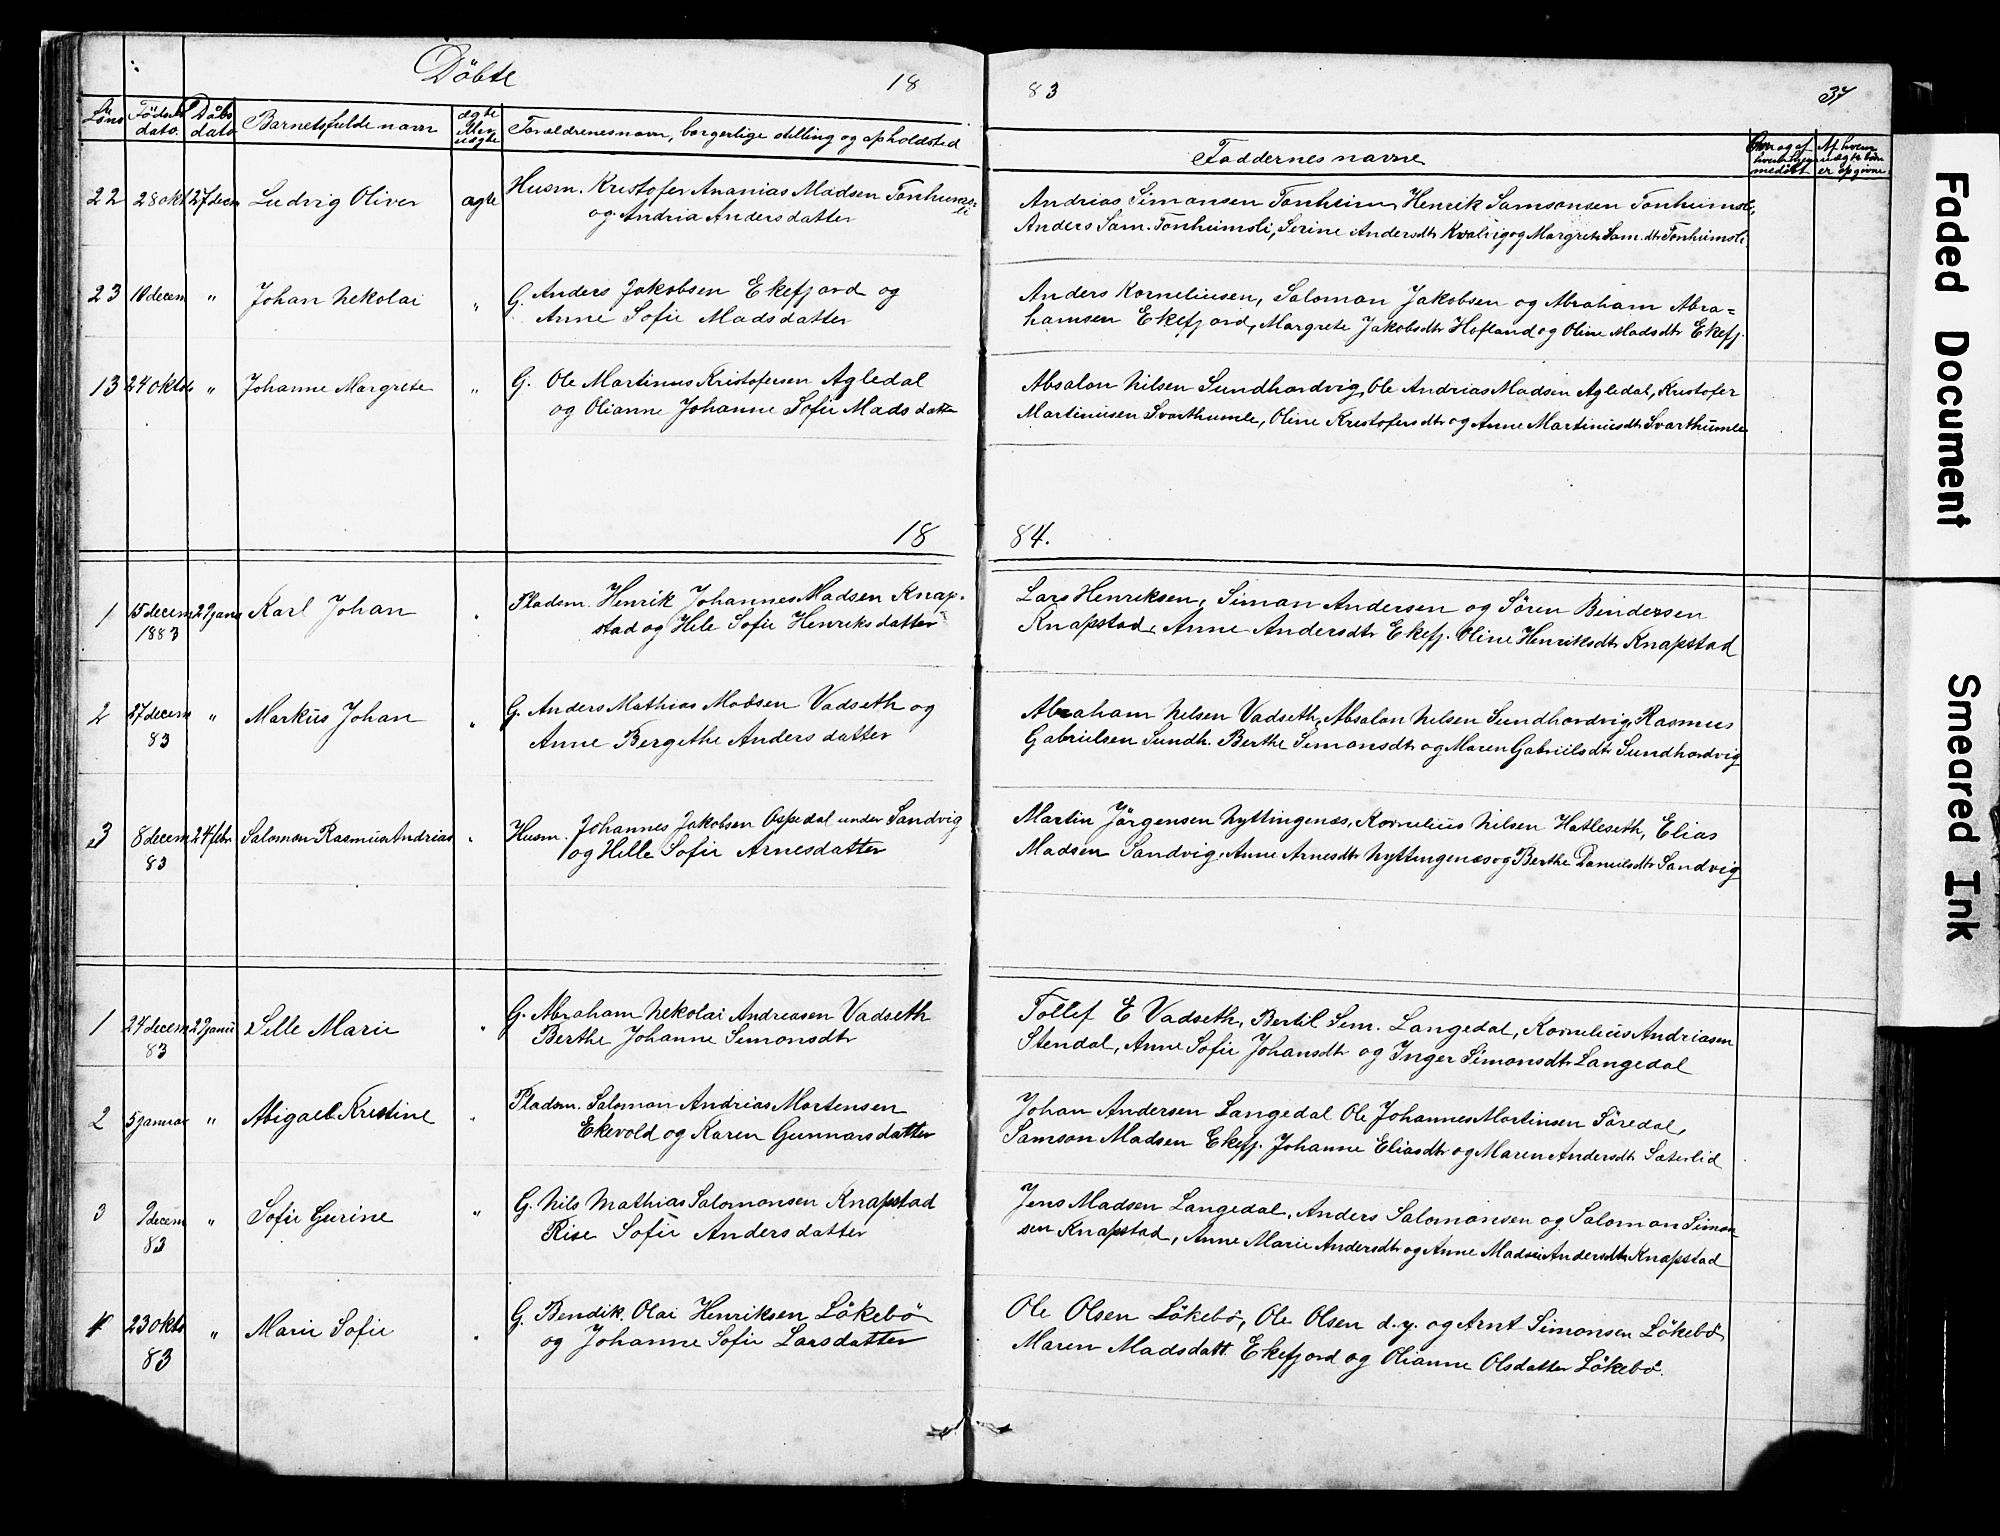 Döbte 18 83 37
Löns Födsels dato Döbs dato Barnetsfulde navn ægte eller uægte Forældrenes navn, borgerlige stilling og opholdsted Faddernes navne
22 28 okt 27 decm Ludvig Oliver ægte Husm. Kristofer Ananias Madsen Tonheimsli
og Andria Andersdatter
Andrias Simonsen Tonheim, Henrik Samsonsen Tonheimsli,
Anders Sam. Tonheimsli, Serine Andersdtr Kvalvig og Margrete Sam.dtr Tonheimsli
23 10 decem " Johan Nekolai " G. Anders Jakobsen Ekefjord og
Anne Sofie Madsdatter
Anders Korneliusen, Salomon Jakobsen og Abraham Abra=
hamsen Ekefjord, Margrete Jakobsdtr Hofland og Oline Madsdtr Ekefj.
13 24 oktob " Johanne Margrete " G. Ole Martinus Kristofersen Agledal
og Olianne Johanne Sofie Madsdatter
Absalon Nilsen Sundhordvig, Ole Andrias Madsen Agledal, Kristofer
Martinusen Svarthumle, Oline Kristofersdtr og Anne Martinusdtr Svarthumle
18 84.
1 15 decem 27 janu Karl Johan " Pladsm. Henrik Johannes Madsen Knap-
1883 stad og Hele Sofie Henriksdatter
Lars Henriksen, Simon Andersen og Sören Bendersen
Knapstad, Anne Andersdtr Ekefj. Oline Henriksdtr Knapstad
2 27 decem " Markus Johan " G. Anders Mathias Madsen Vadseth og
83 Anne Bergethe Andersdatter
Abraham Nelsen Vadseth, Absalon Nelsen Sundhordvig, Rasmus
Gabrielsen Sundh. Berthe Semonsdtr og Maren Gabrielsdtr Sundhordvig
3 8 decem 24 febr Salomon Rasmus Andrias " Husm. Johannes Jakobsen Ospedal under Sandvig
83 og Hille Sofie Arnesdatter
Martin Jörgensen Nyttingenæs, Kornelius Nilsen Hatleseth, Elias
Madsen Sandvig, Anne Arnesdtr Nyttingenæs og Berthe Danielsdtr Sandvig
1 24 decem 27 janu Selle Marie " G. Abraham Nekolai Andreasen Vadseth
83 Berthe Johanne Semonsdtr
Tollef E Vadseth, Bertil Sem. Langedal, Kornelius Andriasen
Stendal, Anne Sofie Johansdtr og Inger Simonsdtr Langedal
2 5 januar " Abigael Kristine " Pladsm. Salomon Andrias Mortensen
Ekevold og Karen Gunnarsdatter
Johan Andersen Langedal Ole Johannes Martinsen Söredal,
Samson Madsen Ekefj. Johanne Eliasdtr og Maren Andersdtr Sæterlid
3 9 decem " Sofie Gurine " G. Nils Mathias Salomonsen Knapstad
83 Rise Sofie Andersdatter
Jens Madsen Langedal, Anders Salomonsen og Salomon Simon-
sen Knapstad, Anne Marie Andersdtr og Anne Madsi Andersdtr Knapstad
4 23 okto " Marie Sofie " G. Bendik Olai Henriksen Lökebö
83 og Johanne Sofie Larsdatter
Ole Olsen Lökebö, Ole Olsen d.y. og Arnt Simonsen Lökebö
Maren Madsdatt. Ekefjord og Olianne Olsdatter Lökebö.
Faded Document
Smeared Ink